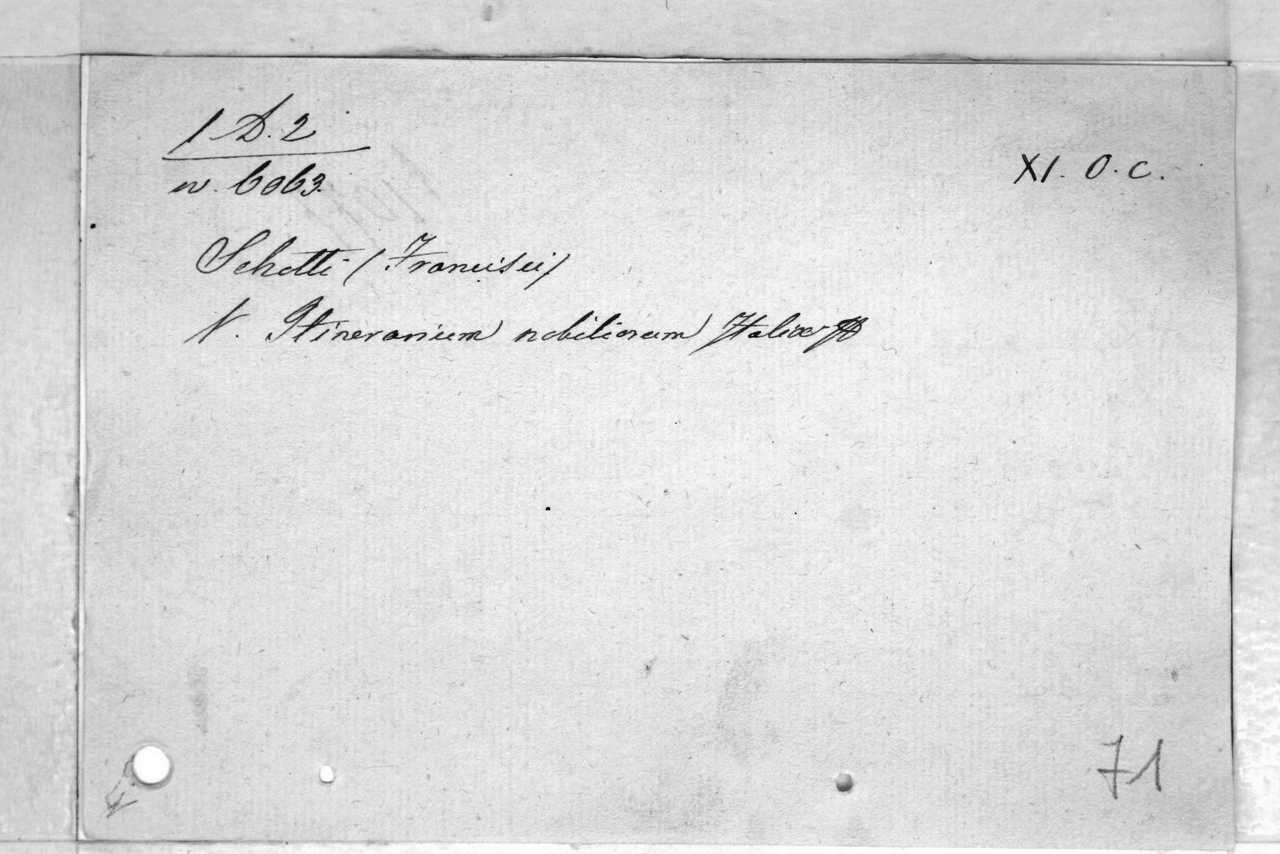 1 D. 2
n. 6063.
XI. O. C.
Schotti (Francisci)
N. Itinerarium nobiliorum Italiæ
71